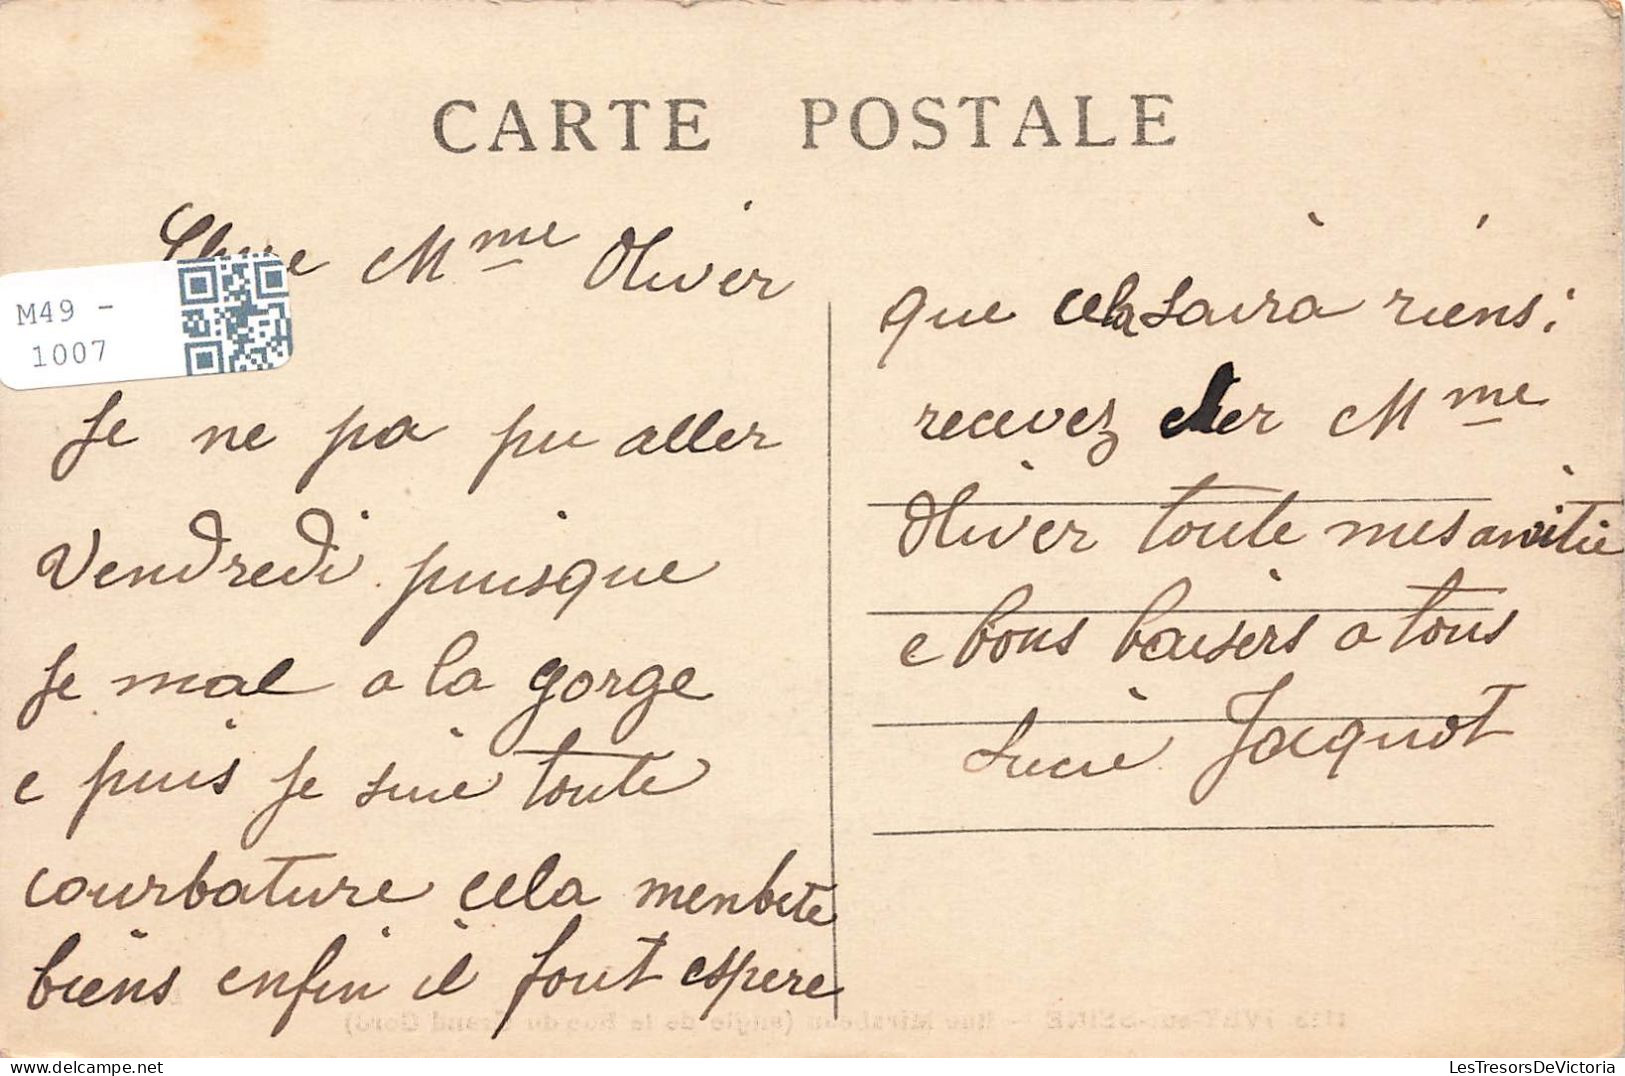 CARTE POSTALE
Chere Mme Oliver
M49 -
1007
Je ne pa pu aller
Vendredi puisque
Je mal a la gorge
e puis Je suie toute
courbature cela menbete
biens enfin il fout espere
que cela saira riens;
recevez cher Mme
Oliver toute mes amitie
e bons baisers a tous
Lucie Jacquot
IVRY-sur-SEINE - Rue Mirabeau (angle de la Rue du Grand Gord)
LesTresorsDeVictoria
delcampe.net